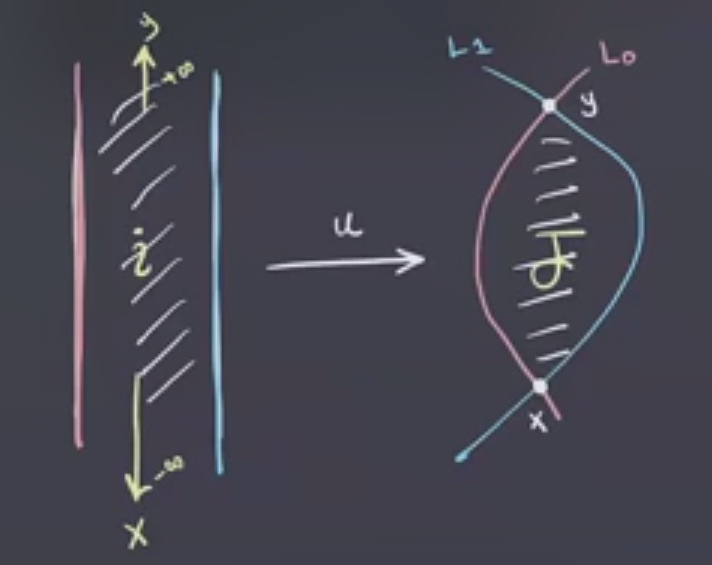 y
+∞
i
-∞
x
u
L1
L0
y
J
x